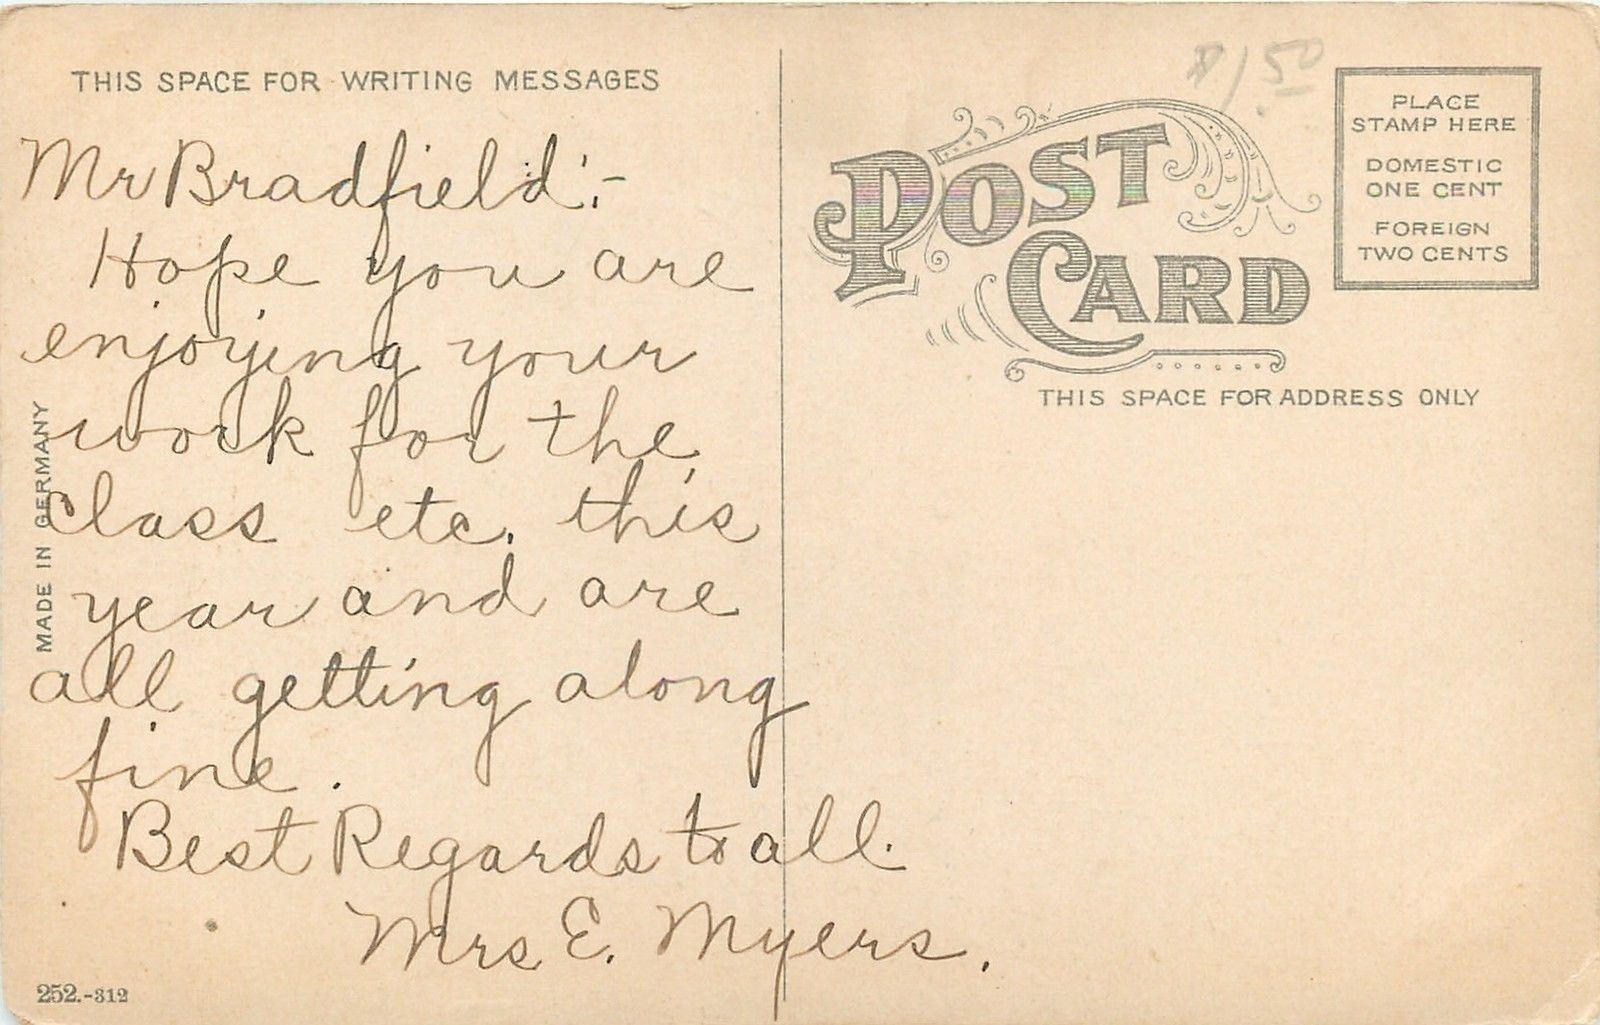 THIS SPACE FOR WRITING MESSAGES
Mr Bradfield:-
Hope you are
enjoying your
work for the
class etc. this
year and are
all getting along
fine.
Best Regards to all.
Mrs E. Myers.
MADE IN GERMANY
252.-312
$1.50
POST
CARD
THIS SPACE FOR ADDRESS ONLY
PLACE
STAMP HERE
DOMESTIC
ONE CENT
FOREIGN
TWO CENTS